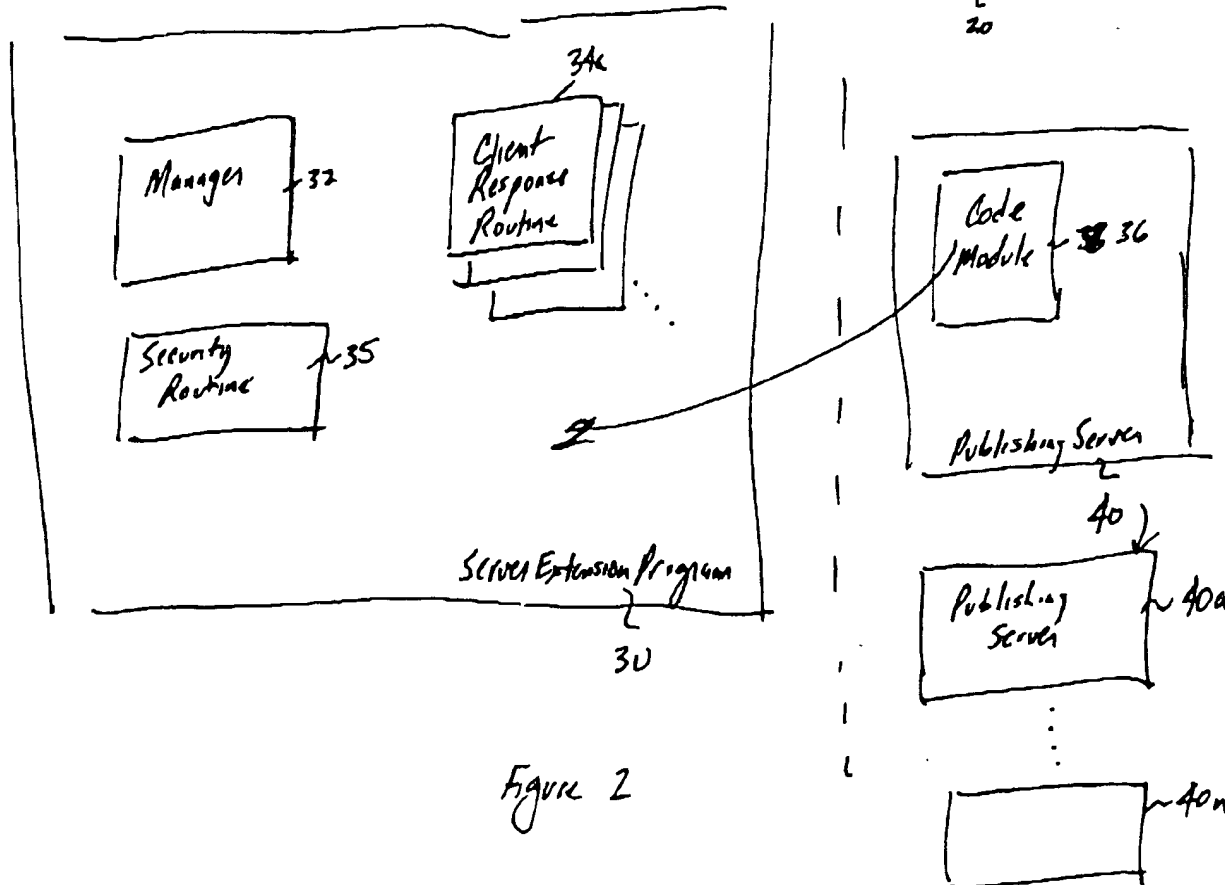 20
34a
Client
Response
Routine
Manager
32
Code
Module
36
Security
Routine
35
Publishing Server
40
Server Extension Program
30
Publishing
Server
40a
40n
Figure 2